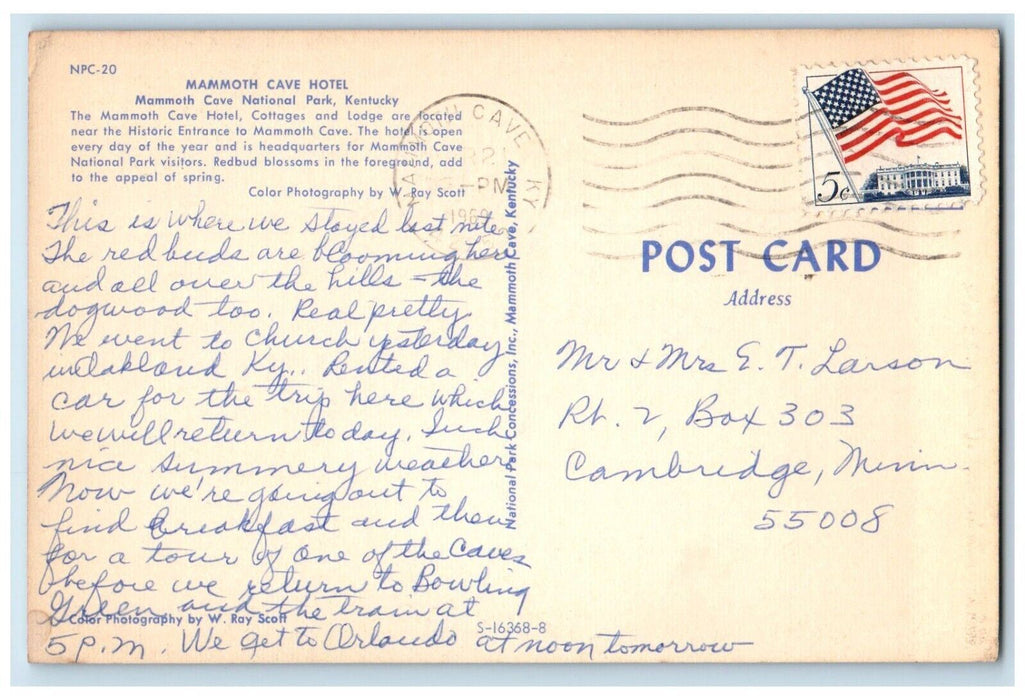 NPC-20
MAMMOTH CAVE HOTEL
Mammoth Cave National Park, Kentucky
The Mammoth Cave Hotel, Cottages and Lodge are located
near the Historic Entrance to Mammoth Cave. The hotel is open
every day of the year and is headquarters for Mammoth Cave
National Park visitors. Redbud blossoms in the foreground, add
to the appeal of spring.
Color Photography by W. Ray Scott
This is where we stayed last nite.
The redbuds are blooming here
and all over the hills - the
dogwood too. Real pretty.
We went to church yesterday
in Oakland Ky.. Rented a
car for the trip here which
we will return today. Such
nice summery weather.
Now we're going out to
find breakfast and then
for a tour of one of the caves
before we return to Bowling
Green, and the train at
Color Photography by W. Ray Scott
5 P.M. We get to Orlando at noon tomorrow
S-16368-8
National Park Concessions, Inc., Mammoth Cave, Kentucky
MAMMOTH CAVE KY
21
PM
5c
POST CARD
Address
Mr & Mrs E. T. Larson
Rt. 2, Box 303
Cambridge, Minn.
55008